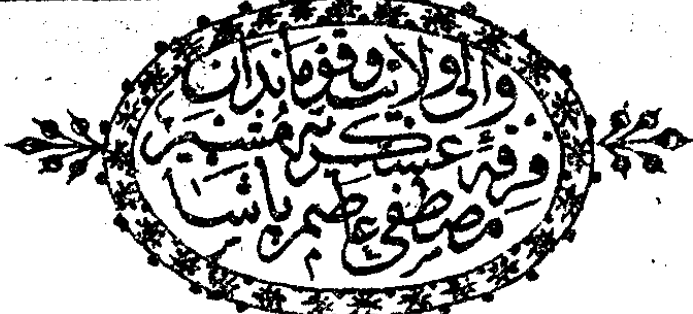 والی ولایت وقوماندان
فرقهٔ عسکریه مشیر
مصطفی عاصم پاشا